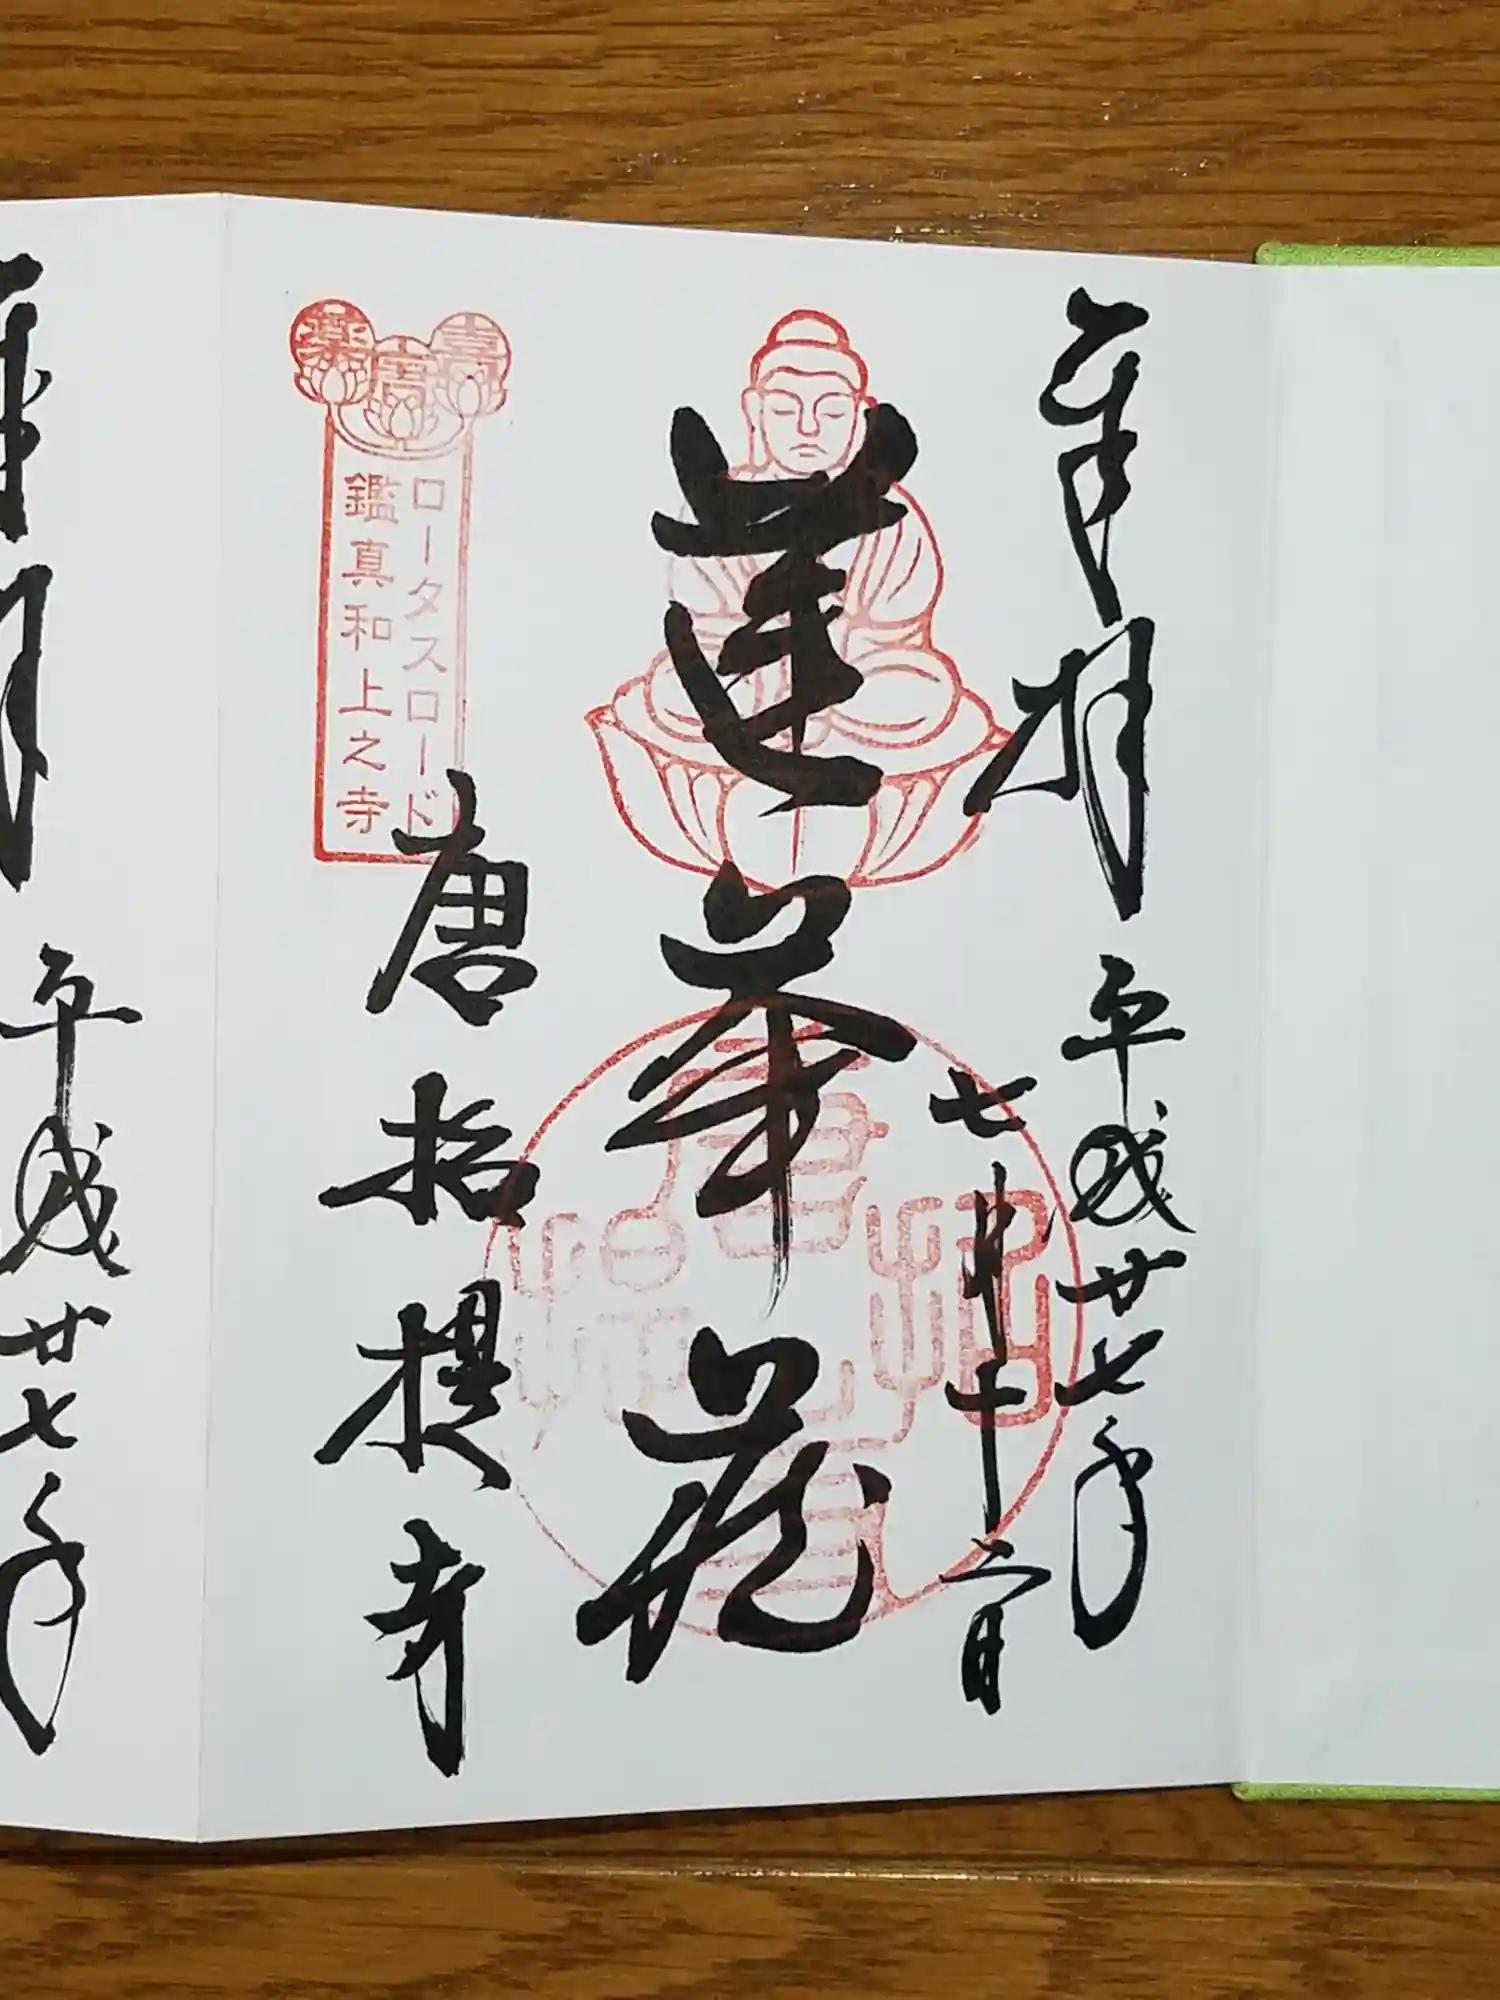 奉拝
平成廿七年
七月十二日
蓮華蔵
唐招提寺
ロータスロード
鑑真和上之寺
喜
唐
薬
平成廿七年